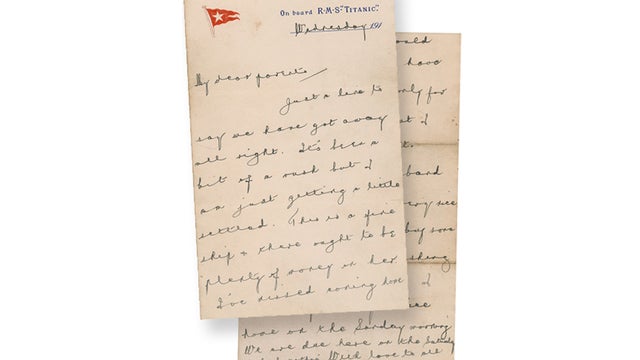 On board R·M·S·"TITANIC."
Wednesday 191
My dear parents
Just a line to
say we have got away
all right. It's been a
bit of a rush but I
am just getting a little
settled. This is a fine
ship & there ought to be
plenty of money on her
I've missed coming home
could
have
only for
t I
board
very nice
buy some
home on the Sunday morning
We are due here on the Saturday
love to all